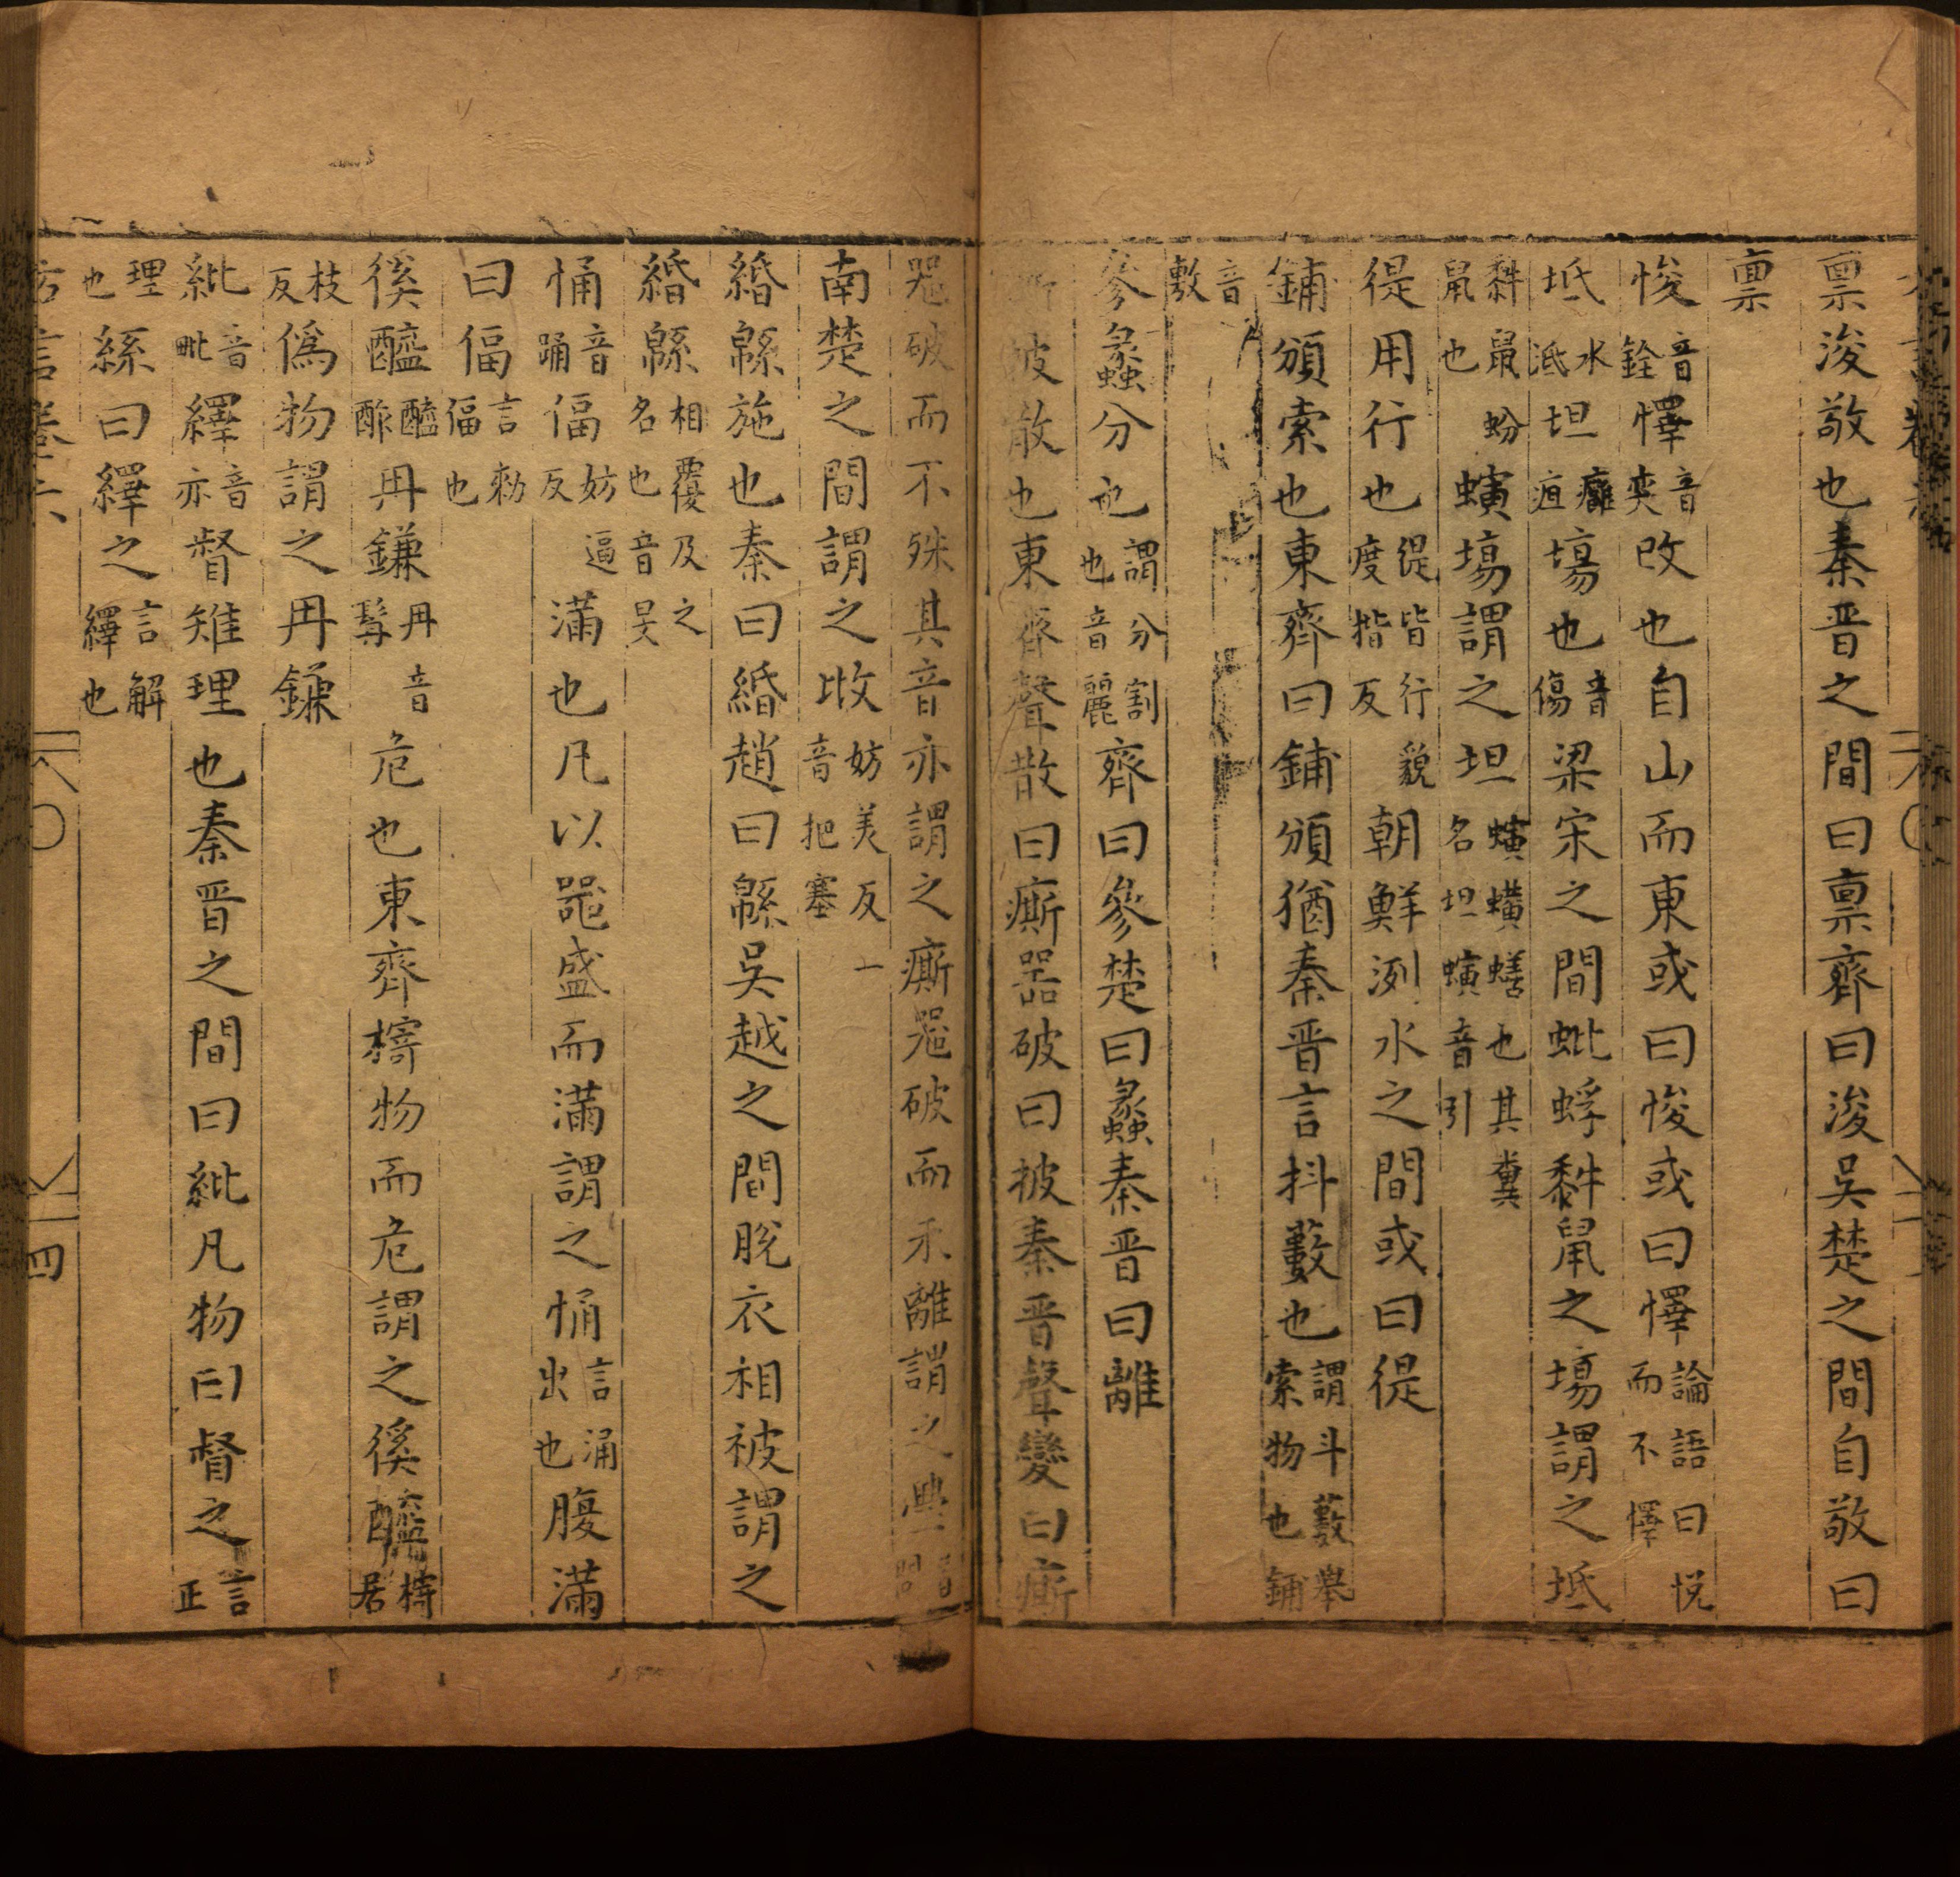 禀浚敬也秦晋之間曰禀齊曰浚吳楚之間自敬曰
禀
悛音銓懌音奕改也自山而東或曰悛或曰懌論語曰悅而不懌
坻水泜坦癰疽塲也音傷梁宋之間蚍蜉𪐀鼠之塲謂之坻
𪐀鼠蚡鼠也螾塲謂之坦螾蟥蟮也其糞名坦螾音引
徥用行也徥皆行貌度揩反朝鮮洌水之間或曰徥
鋪頒索也東齊曰鋪頒猶秦晋言抖藪也謂斗藪舉索物也鋪
音敷
參蠡分也謂分割也音麗齊曰參楚曰蠡秦晋曰離
披散也東齊聲散曰㾷器破曰披秦晋聲變曰㾷
器破而不殊其音亦謂之㾷器破而未離謂之璺音問
南楚之間謂之㪏妨美反一音把塞
緍緜施也秦曰緍趙曰緜吳越之間脫衣相被謂之
緍緜相覆及之名也音旻
悀音踊偪妨逼反滿也凡以器盛而滿謂之悀言涌出也腹滿
曰偪言勑偪也
徯醯醯酢冉鎌冉音髯危也東齊㨆物而危謂之徯醯㨆居
枝反偽物謂之冉鎌
紕音毗繹音亦督雉理也秦晋之間曰紕凡物曰督之言正
理也絲曰繹之言解繹也
方言卷六 四